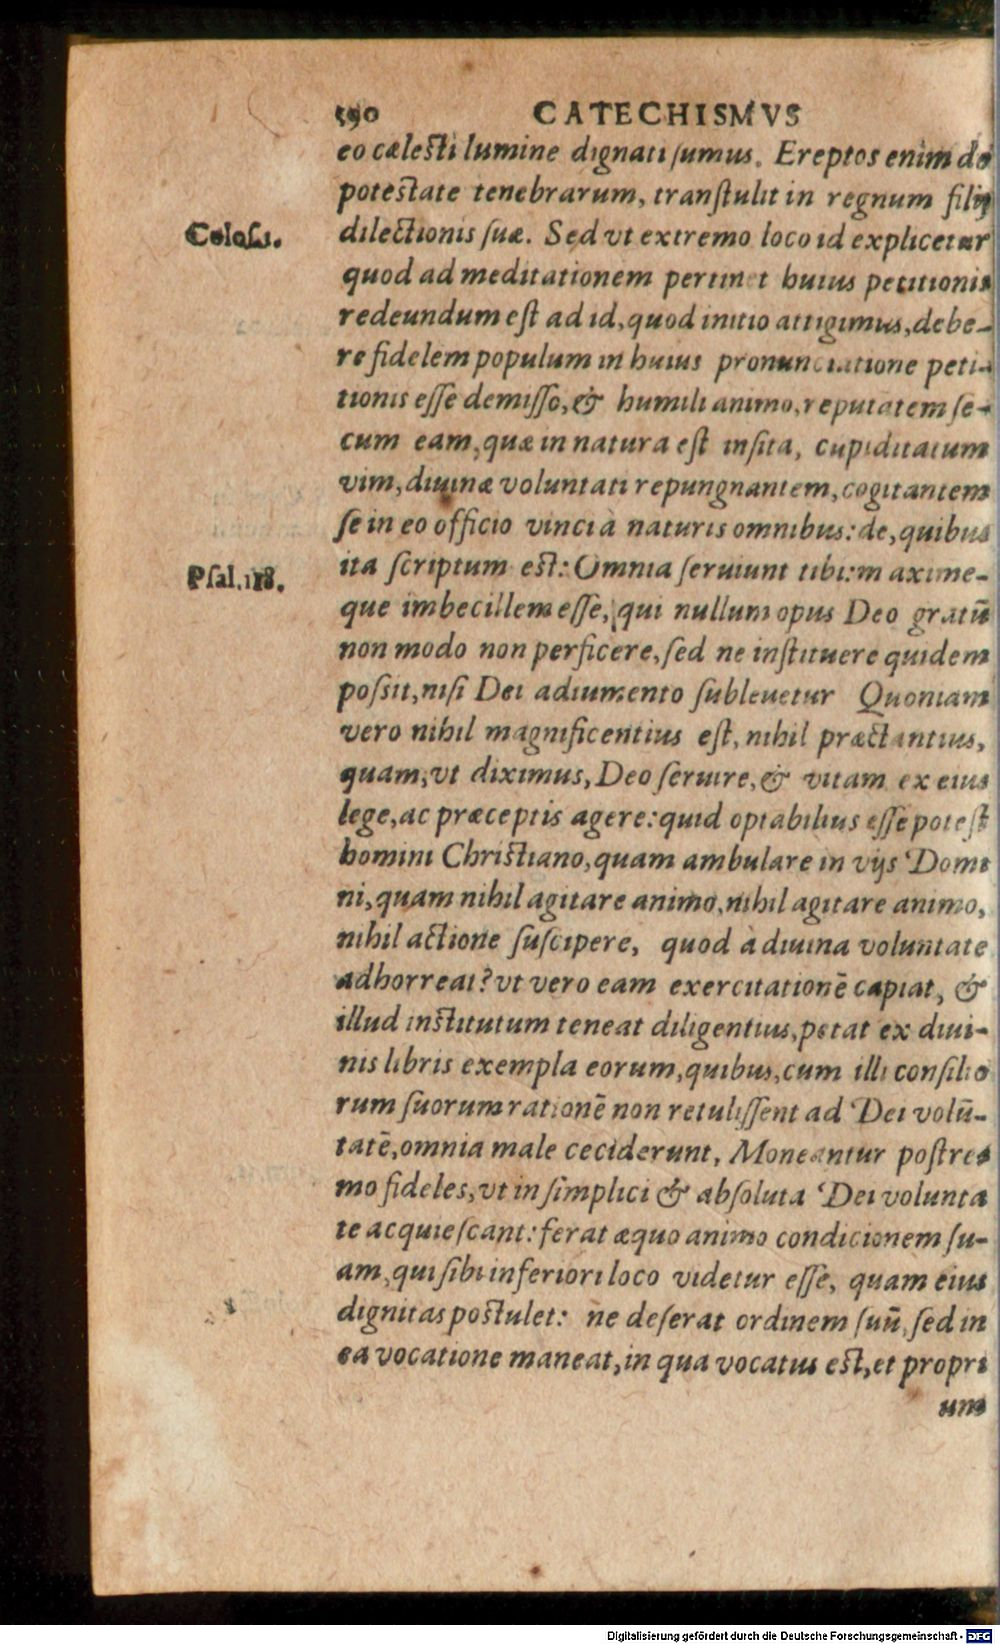 590 CATECHISMVS
eo cælesti lumine dignati ſumus. Ereptos enim de
potestate tenebrarum, tranſtulit in regnum filij
Coloſ.1.
dilectionis ſuæ. Sed vt extremo loco id explicetur
quod ad meditationem pertinet huius petitionis
redeundum eſt ad id, quod initio attigimus, debe-
re fidelem populum in huius pronunciatione peti-
tionis eſſe demiſſo, & humili animo, reputatem ſe-
cum eam, quæ in natura eſt inſita, cupiditatum
vim, diuinæ voluntati repungnantem, cogitantem
ſe in eo officio vinci à naturis omnibus: de, quibus
Pſal.118.
ita ſcriptum est: Omnia ſeruiunt tibi: m axime-
que imbecillem eſſe, qui nullum opus Deo gratū
non modo non perficere, ſed ne inſtituere quidem
poſsit, niſi Dei adiumento ſubleuetur Quoniam
vero nihil magnificentius eſt, nihil præctantius,
quam, vt diximus, Deo ſeruire, & vitam ex eius
lege, ac præceptis agere: quid optabilius eſſe poteſt
homini Christiano, quam ambulare in vijs Domi
ni, quam nihil agitare animo, nihil agitare animo,
nihil actione ſuſcipere, quod à diuina voluntate
adhorreat? vt vero eam exercitationē capiat, &
illud institutum teneat diligentius, petat ex diui-
nis libris exempla eorum, quibus, cum illi conſilio
rum ſuorum rationē non retuliſſent ad Dei volū-
tatē, omnia male ceciderunt, Moneantur poſtre
mo fideles, vt in ſimplici & abſoluta Dei volunta
te acquieſcant: ferat æquo animo condicionem ſu-
am, qui ſibi inferiori loco videtur eſſe, quam eius
dignitas postulet: ne deſerat ordinem ſuū, ſed in
ea vocatione maneat, in qua vocatus est, et propri
um
Digitalisierung gefördert durch die Deutsche Forschungsgemeinschaft - DFG